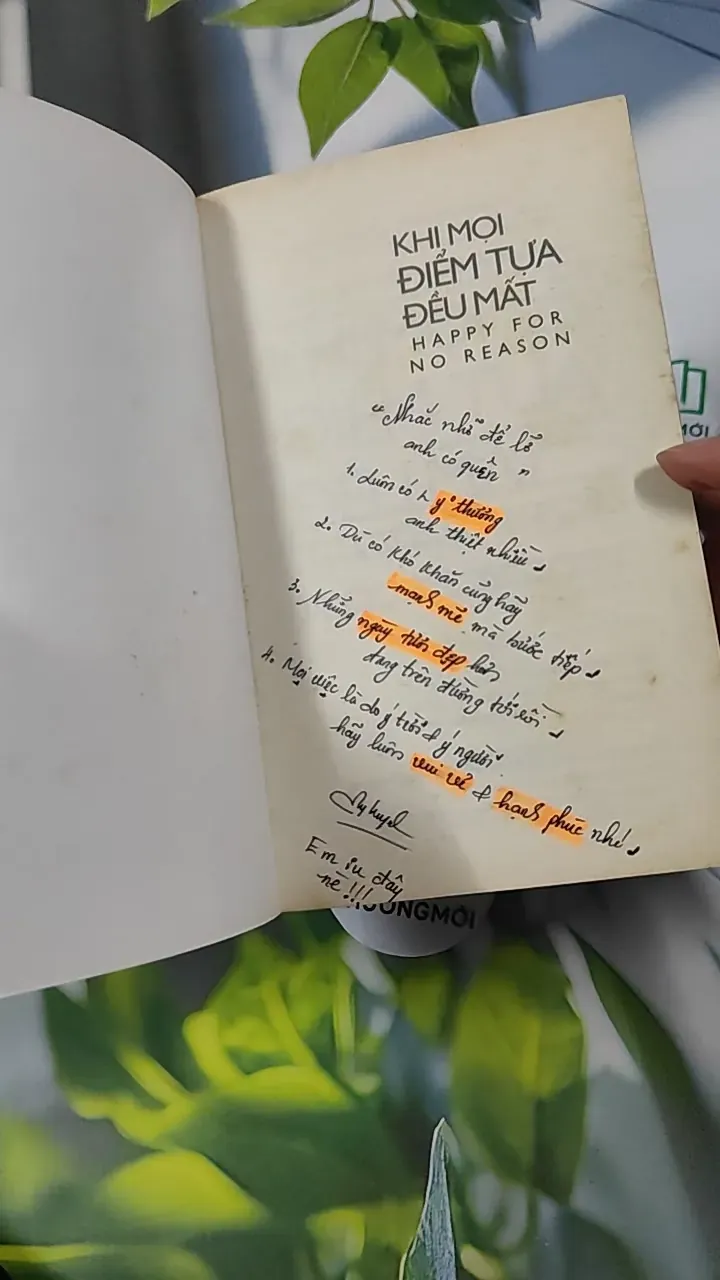 KHI MỌI
ĐIỂM TỰA
ĐỀU MẤT
HAPPY FOR
NO REASON
"Nhắc nhở để lỡ
anh có quên"
1. Luôn có 1 ý° thương
anh thiệt nhiều
2. Dù có khó khăn cũng hãy
mạnh mẽ mà bước tiếp
3. Những ngày tươi đẹp hơn
đang trên đường tới rồi
4. Mọi việc là do ý trời & ý người
hãy luôn vui vẻ & hạnh phúc nhé
Em iu đây
nè!!!
ƯƠNGMỚI
MỚI